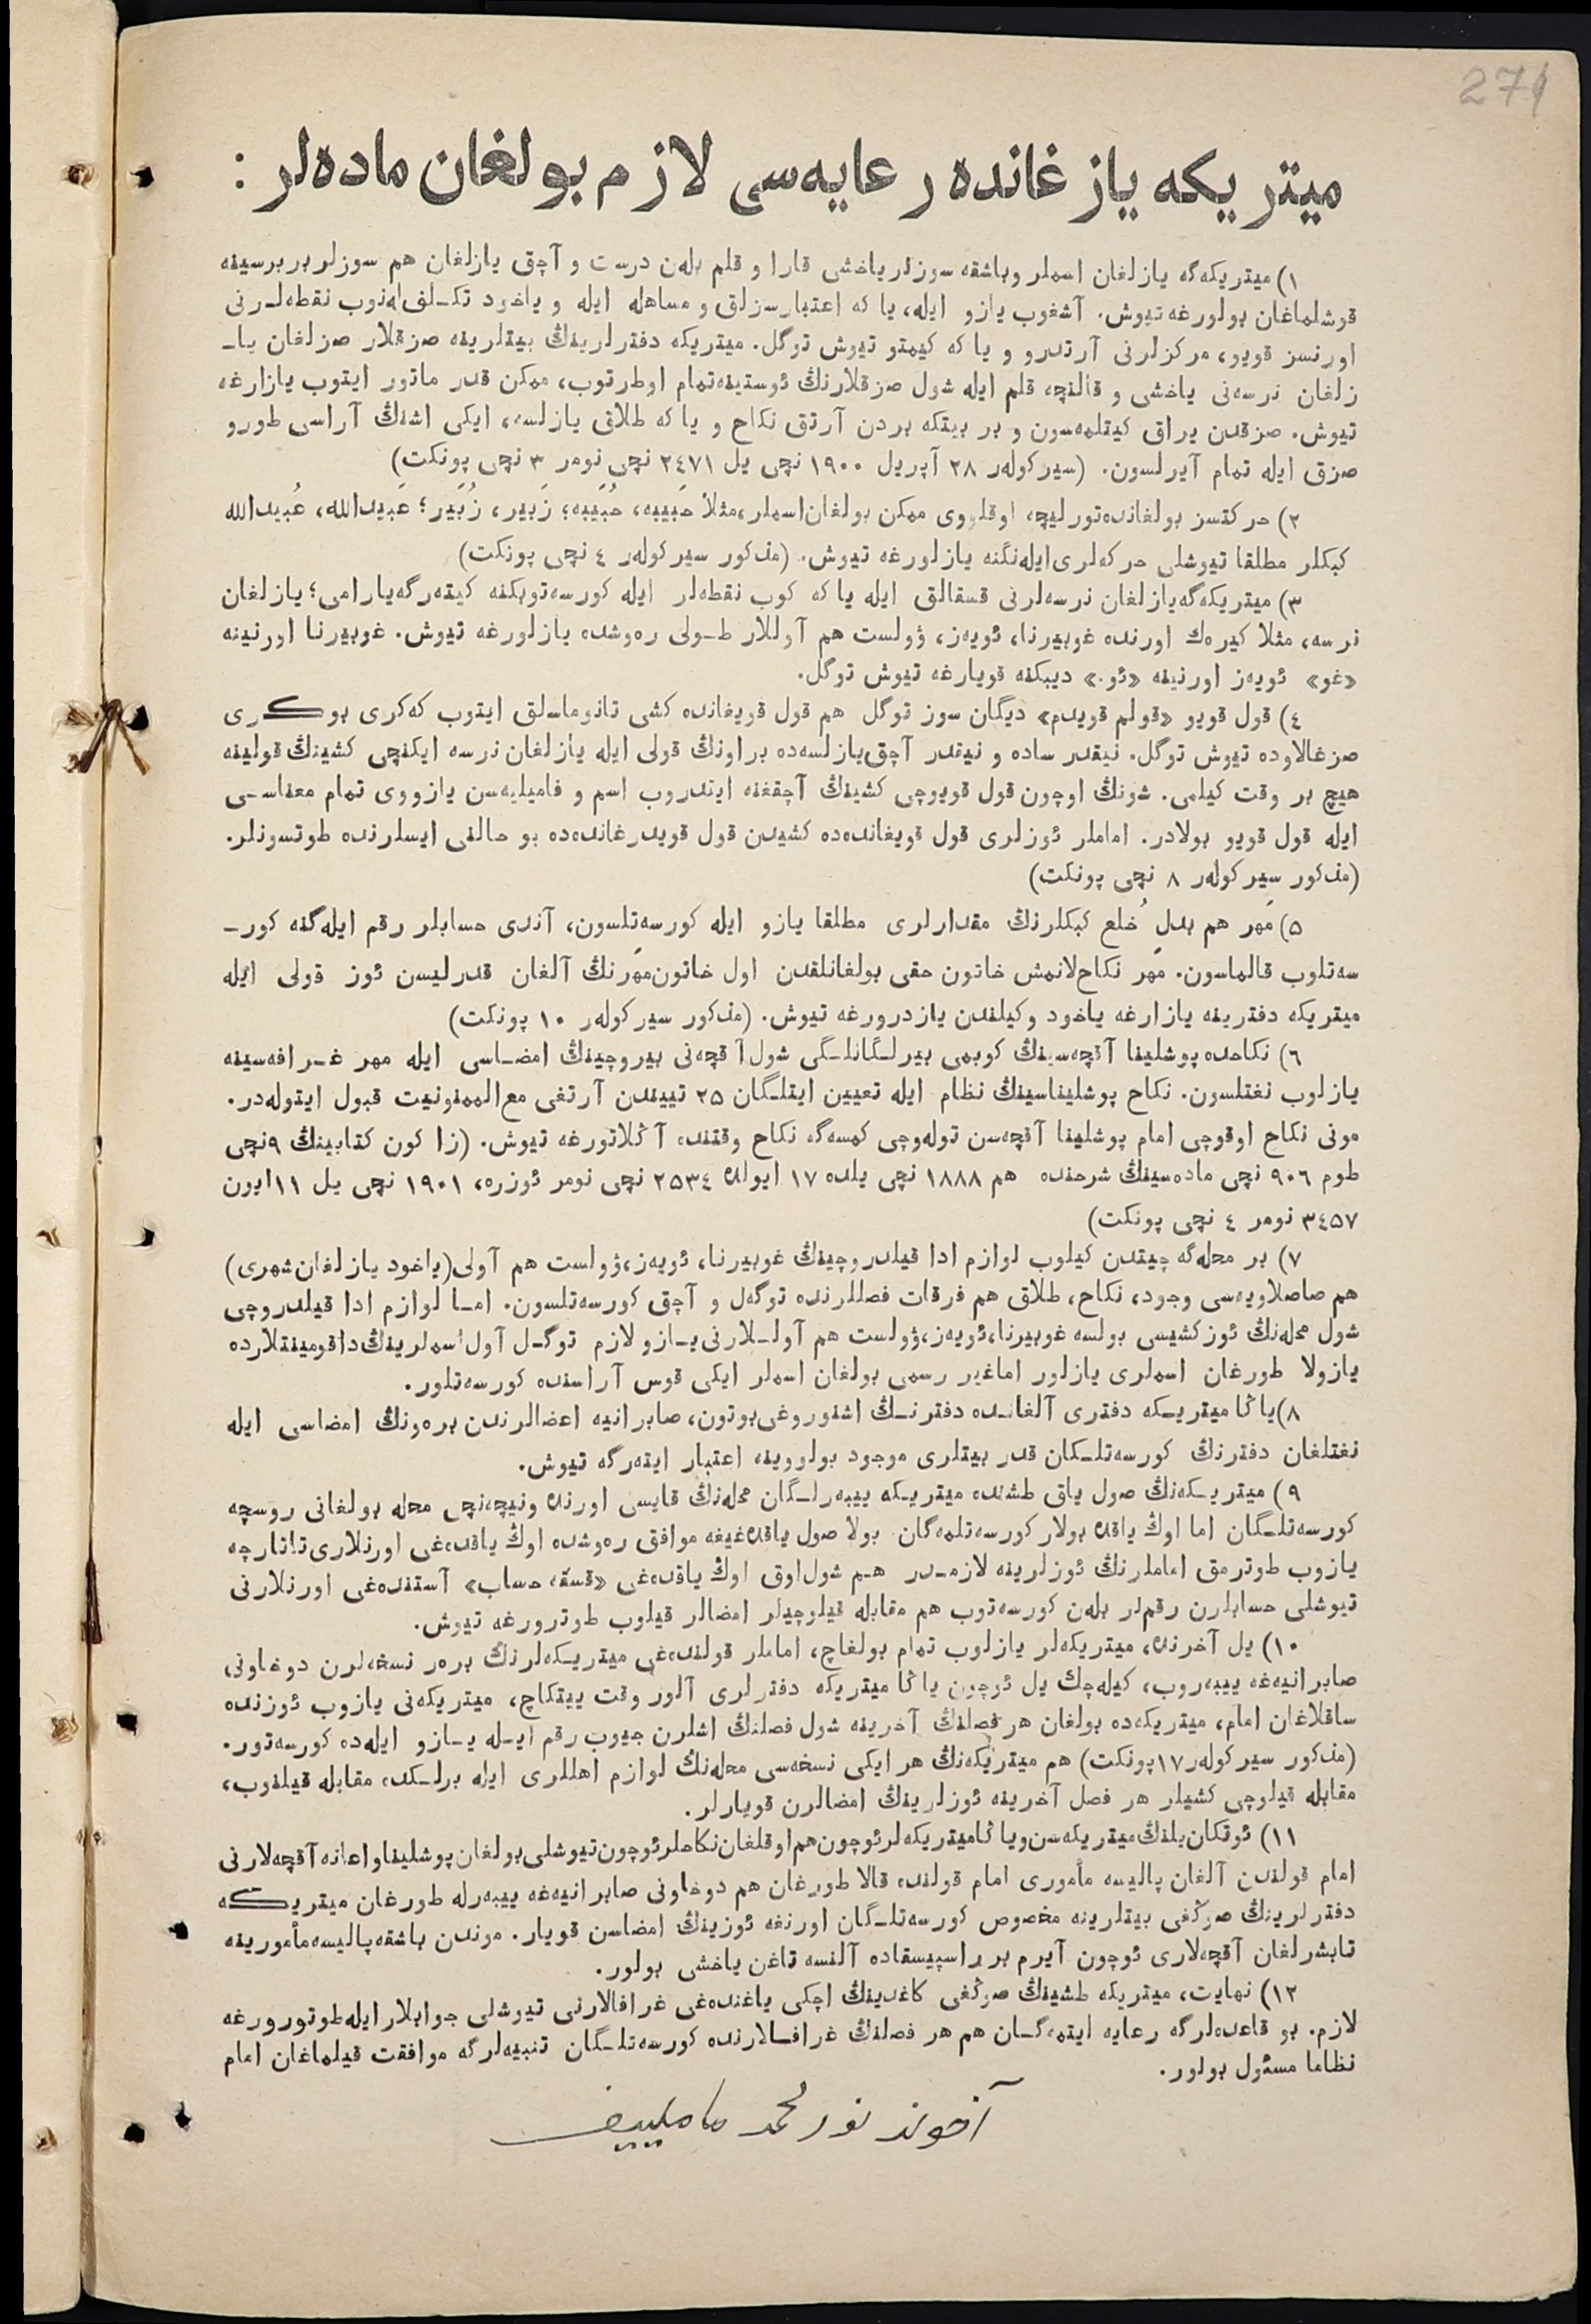 271
میتریکه یازغانده رعایه‌سی لازم بولغان ماده‌لر :
۱) میتریکه‌گه یازلغان اسملر وباشقه سوزلر یاخشی قارا و قلم بله‌ن درست و آچق یازلغان هم سوزلر بر برسینه
قوشلماغان بولورغه تیوش. آشغوب یازو ایله، یا که اعتبارسزلق و مساهله ایله و یاخود تکـلف‌له‌نوب نقطه‌لـرنی
اورنسز قویو، مرکزلرنی آرتدرو و یا که کیمتو تیوش توگل. میتریکه دفترلرینڭ بیتلرینه صزقلار صزلغان یاـ
زلغان نرسه‌نی یاخشی و قالنچه قلم ایله شول صزقلارنڭ ئوستینه‌تمام اوطرتوب، ممکن قدر ماتور ایتوب یازارغه
تیوش. صزقدن یراق کیتلمه‌سون و بر بیتکه بردن آرتق نکاح و یا که طلاق یازلسه، ایکی اشنڭ آراسی طورو
صزق ایله تمام آیرلسون. (سیرکوله‌ر ۲۸ آپریل ۱۹۰۰ نچی یل ۲٤۷۱ نچی نومر ۳ نچی پونکت)
۲) حرکتسز بولغانده‌تورلیچه اوقلووی ممکن بولغان‌اسملر،مثلا حَبیبه، حُبَیبه؛ زَبیر، زُبَیر؛ عَبیدالله، عُبیدالله
کبکلر مطلقا تیوشلی حرکه‌لری‌ایله‌نگنه یازلورغه تیوش. (مذکور سیرکوله‌ر ٤ نچی پونکت)
۳) میتریکه‌گه‌یازلغان نرسه‌لرنی قسقالق ایله یا که کوب نقطه‌لر ایله کورسه‌توبکنه کیته‌رگه‌یارامی؛ یازلغان
نرسه، مثلا کیره‌ك اورنده غوبیرنا، ئویه‌ز، وٛولست هم آوللار طـولی ره‌وشده یازلورغه تیوش. غوبیرنا اورنینه
«غو» ئویه‌ز اورنینه «ئو.» دیبکنه قویارغه تیوش توگل.
٤) قول قویو «قولم قویدم» دیگان سوز توگل هم قول قویغانده کشی تانوماسلق ایتوب که‌کری بوکـری
صزغالاوده تیوش توگل. نیقدر ساده و نیقدر آچق‌یازلسه‌ده براونڭ قولی ایله یازلغان نرسه ایکنچی کشینڭ قولینه
هیچ بر وقت کیلمی. شونڭ اوچون قول قویوچی کشینڭ آچقغنه ایتدروب اسم و فامیلیه‌سن یازووی تمام معناسـی
ایله قول قویو بولادر. اماملر ئوزلری قول قویغانده‌ده کشیدن قول قویدرغانده‌ده بو حالنی ایسلرنده طوتسونلر.
(مذکور سیرکوله‌ر ۸ نچی پونکت)
۵) مَهر هم بدلِ خُلع کبکلرنڭ مقدارلری مطلقا یازو ایله کورسه‌تلسون، آندی حسابلر رقم ایله‌گنه کورـ
سه‌تلوب قالماسون. مَهر نکاح‌لانمش خاتون حقی بولغانلقدن اول خاتون‌مهرنڭ آلغان قدرلیسن ئوز قولی ایله
میتریکه دفترینه یازارغه یاخود وکیلندن یازدرورغه تیوش. (مذکور سیرکوله‌ر ۱۰ پونکت)
٦) نکاحده پوشلینا آقچه‌سینڭ کوبمی بیرلـگانلـگی شول‌آقچه‌نی بیروچینڭ امضـاسی ایله مهر غـرافه‌سینه
یازلوب نغتلسون. نکاح پوشلیناسینڭ نظام ایله تعیین ایتلـگان ۲۵ تییندن آرتغی مع‌الممنونیت قبول ایتوله‌در.
مونی نکاح اوقوچی امام پوشلینا آقچه‌سن توله‌وچی کمسه‌گه نکاح وقتنده آڭلاتورغه تیوش. (زا کون کتابینڭ ۹نچی
طوم ۹۰٦ نچی ماده‌سینڭ شرحنده هم ۱۸۸۸ نچی یلده ۱۷ ایولده ۲۵۳٤ نچی نومر ئوزره، ۱۹۰۱ نچی یل ۱۱ایون
۳٤۵۷ نومر ٤ نچی پونکت)
۷) بر محله‌گه چیتدن کیلوب لوازم ادا قیلدروچینڭ غوبیرنا، ئویه‌ز،وٛولست هم آولی(یاخود یازلغان‌شهری)
هم صاصلاویه‌سی وجود، نکاح، طلاق هم فرقات فصللرنده توگه‌ل و آچق کورسه‌تلسون. امـا لوازم ادا قیلدروچی
شول محله‌نڭ ئوز کشیسی بولسه غوبیرنا،ئویه‌ز،وٛولست هم آولـلارنی یـازو لازم توگـل آول‌اسملرینڭ‌داقومینتلارده
یازولا طورغان اسملری یازلور اماغیر رسمی بولغان اسملر ایکی قوس آراسنده کورسه‌تلور.
۸)یاڭا میتریـکه دفتری آلغانـده دفترنـڭ اشنوروغی‌بوتون، صابرانیه اعضالرندن بره‌ونڭ امضاسی ایله
نغتلغان دفترنڭ کورسه‌تلـکان قدر بیتلری موجود بولووینه اعتبار ایته‌رگه تیوش.
۹) میتریـکه‌نڭ صول یاق طشنده میتریـکه ییبه‌رلـگان محله‌نڭ قایسی اورنده ونیچه‌نچی محله بولغانی روسچه
کورسه‌تلـگان اما اوڭ یاقده بولار کورسه‌تلمه‌گان. بولا صول یاقده‌غیغه موافق ره‌وشده اوڭ یاقده‌غی اورنلاری‌تاتارچه
یازوب طوترمق اماملرنڭ ئوزلرینه لازمـدر هـم شول‌اوق اوڭ یاقده‌غی «قسقه حساب» آستنده‌غی اورنلارنی
تیوشلی حسابلرن رقم‌لر بله‌ن کورسه‌توب هم مقابله قیلوچیلر امضالر قیلوب طوترورغه تیوش.
۱۰) یل آخرنده، میتریکه‌لر یازلوب تمام بولغاچ، اماملر قولنده‌غی میتریـکه‌لرنڭ بره‌ر نسخه‌لرن دوخاونی
صابرانیه‌غه ییبه‌روب، کیله‌چك یل ئوچون یاڭا میتریکه دفترلری آلور وقت ییتکاچ، میتریکه‌نی یازوب ئوزنده
ساقلاغان امام، میتریکه‌ده بولغان هر فصلنڭ آخرینه شول فصلنڭ اشلرن جیوب رقم ایـله یـازو ایله‌ده کورسه‌تور.
(مذکور سیرکوله‌ر ۱۷پونکت) هم میتریکه‌نڭ هر ایکی نسخه‌سی محله‌نڭ لوازم اهللری ایله برلـکده مقابله قیلنوب،
مقابله قیلوچی کشیلر هر فصل آخرینه ئوزلرینڭ امضالرن قویارلر.
۱۱) ئوتکان‌یلنڭ‌میتریکه‌سن‌ویاڭامیتریکه‌لرئوچون‌هم‌اوقلغان‌نکاحلرئوچون‌تیوشلی‌بولغان‌پوشلیناواعانه‌آقچه‌لارنی
امام قولندن آلغان پالیسه مأموری امام قولنده قالا طورغان هم دوخاونی صابرانیه‌غه ییبه‌رله طورغان میتریـکه
دفترلرینڭ صوڭغی بیتلرینه مخصوص کورسه‌تلـگان اورنغه ئوزینڭ امضاسن قویار. موندن باشقه‌پالیسه‌مأمورینه
تابشرلغان آقچه‌لاری ئوچون آیرم بر راسپیسقاده آلنسه تاغن یاخشی بولور.
۱۲) نهایت، میتریکه طشینڭ صوڭغی کاغدینڭ اچکی یاغنده‌غی غرافالارنی تیوشلی جوابلار ایله طوتورورغه
لازم. بو قاعده‌لرگه رعایه ایتمه‌گـان هم هر فصلنڭ غرافـالارنده کورسه‌تلـگان تنبیه‌لرگه موافقت قیلماغان امام
نظاما مسئول بولور.
آخوند نورمحمد مامليیف